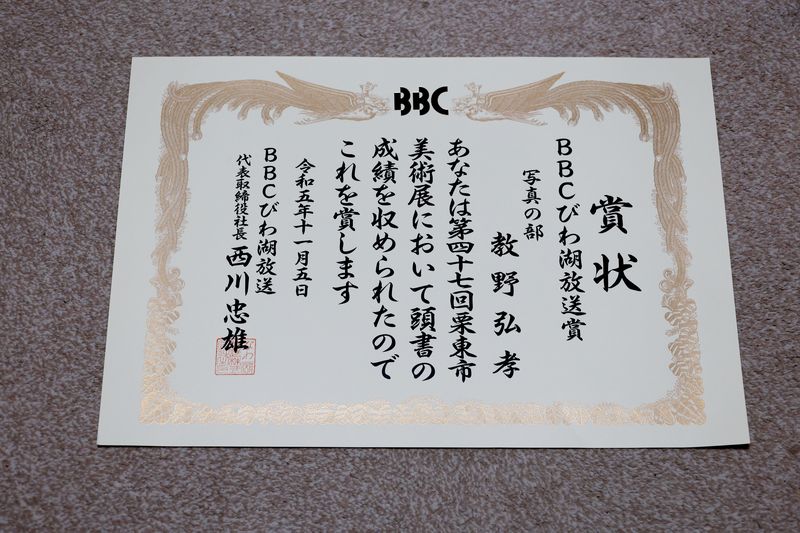 BBC
賞状
BBCびわ湖放送賞
写真の部
教野弘孝
あなたは第四十七回栗東市
美術展において頭書の
成績を収められたので
これを賞します
令和五年十一月五日
BBCびわ湖放送
代表取締役社長 西川忠雄